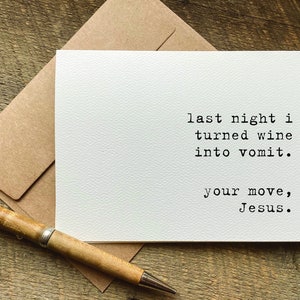 last night i
turned wine
into vomit.
your move,
Jesus.